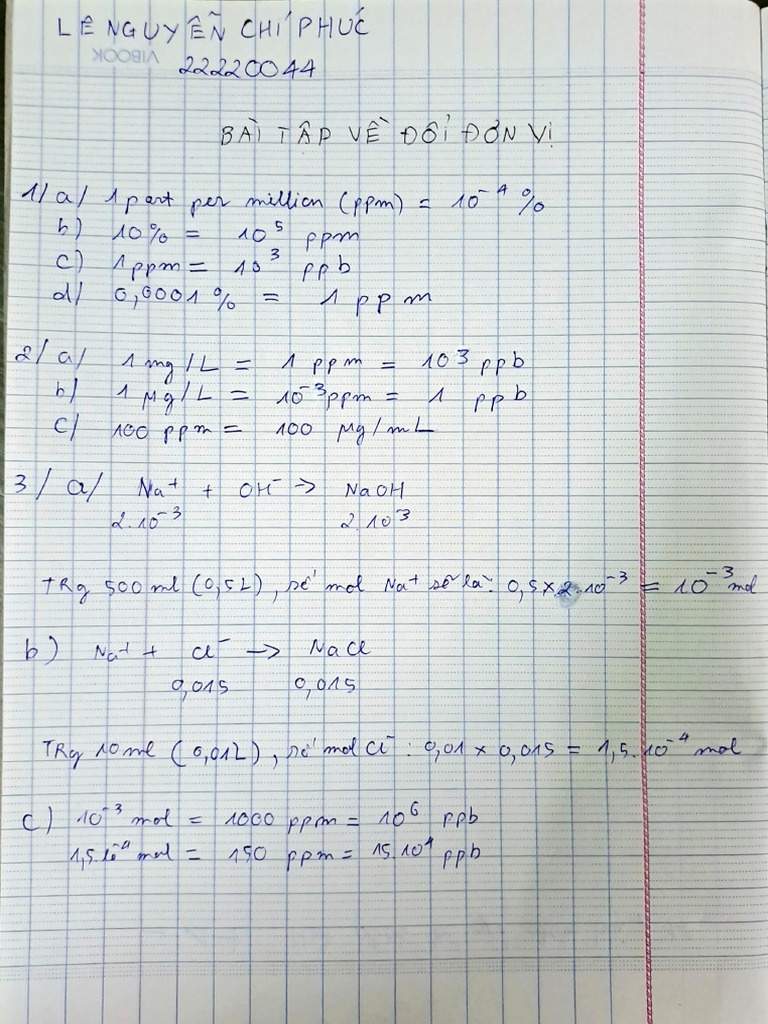 LÊ NGUYỄN CHÍ PHÚC
VIBOOK
22220044
BÀI TẬP VỀ ĐỔI ĐƠN VỊ
1/ a/ 1 part per million (ppm) = 10⁻⁴ %
b) 10% = 10⁵ ppm
c) 1ppm = 10³ ppb
d) 0,0001% = 1 ppm
2/ a/ 1 mg/L = 1 ppm = 10³ ppb
b/ 1 μg/L = 10⁻³ppm = 1 ppb
c/ 100 ppm = 100 μg/mL
3/ a/ Na⁺ + OH⁻ → NaOH
2.10⁻³ 2.10⁻³
TRg 500ml (0,5L), số mol Na⁺ sẽ là: 0,5×2.10⁻³ = 10⁻³mol
b) Na⁺ + Cl⁻ → NaCl
0,015 0,015
TRg 10ml (0,01L), số mol Cl⁻ : 0,01 × 0,015 = 1,5.10⁻⁴ mol
c) 10⁻³ mol = 1000 ppm = 10⁶ ppb
1,5.10⁻⁴ mol = 150 ppm = 15.10⁴ ppb